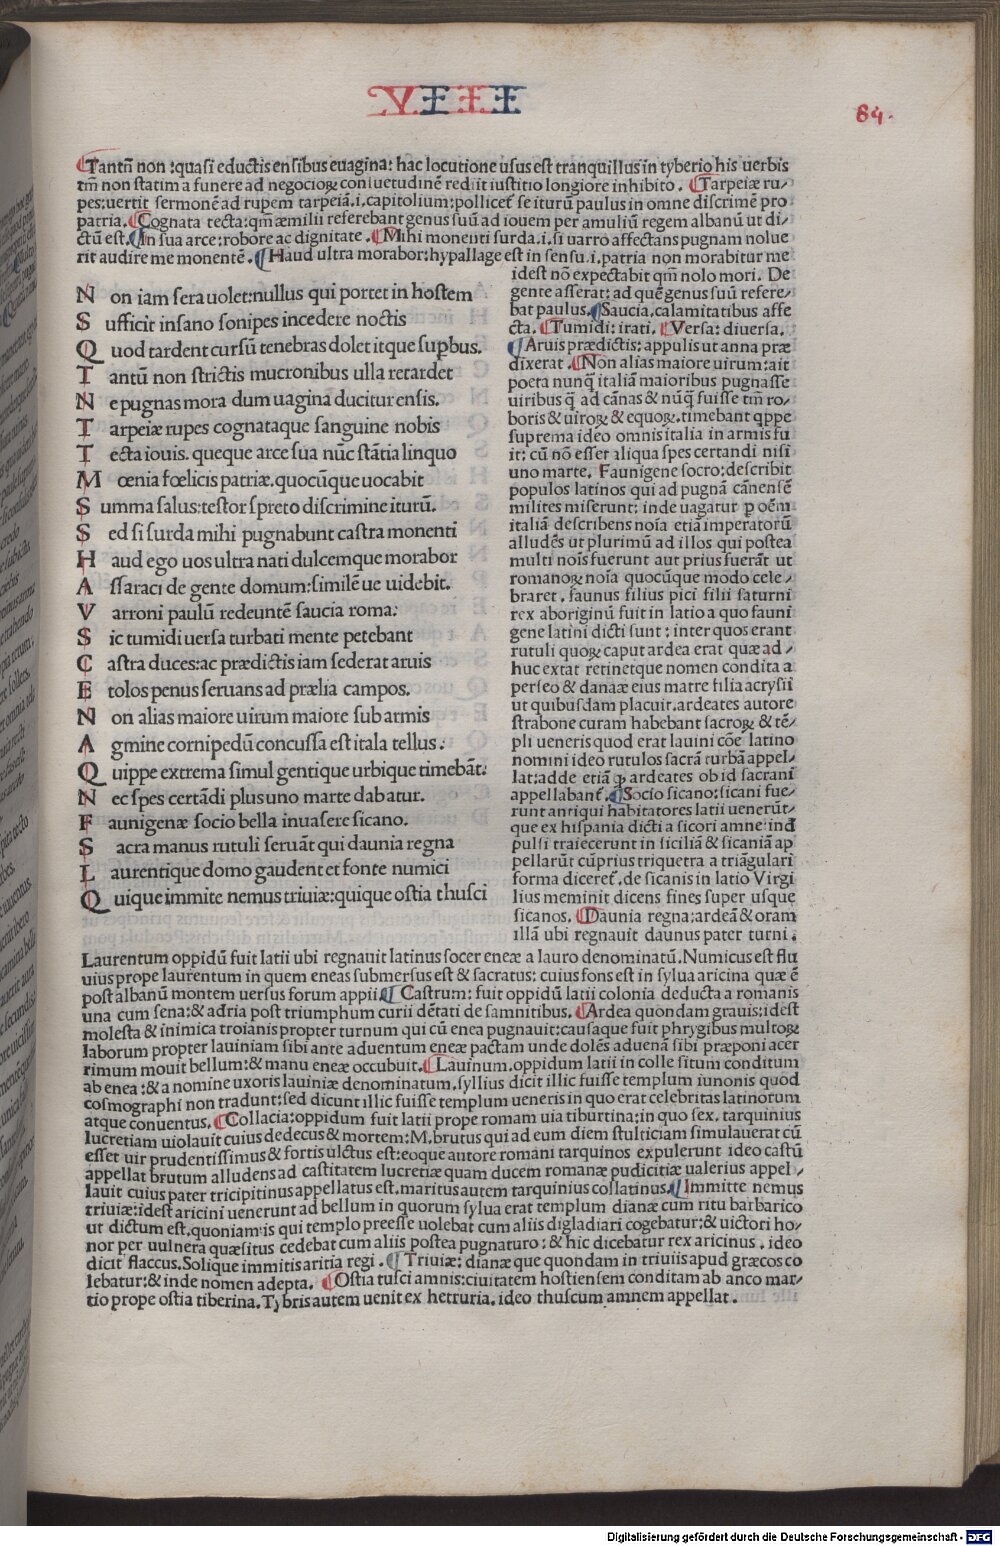 VIII
84.
Tantū non :quasi eductis ensibus euagina: hac locutione usus est tranquillus in tyberio his uerbis
tm̄ non statim a funere ad negocioꝝ consuetudinē rediit iustitio longiore inhibito. Tarpeiæ ru⸗
pes:uertit sermonē ad rupem tarpeiā.i.capitolium:pollicet̄ se iturū paulus in omne discrimē pro
patria. Cognata tecta:qm̄ æmilii referebant genus suū ad iouem per amuliū regem albanū ut di⸗
ctū est. In sua arce:robore ac dignitate. Mihi monenti surda.i.si uarro affectans pugnam nolue
rit audire me monentē. Haud ultra morabor:hypallage est in sensu.i.patria non morabitur me
N on iam sera uolet:nullus qui portet in hostem
S ufficit insano sonipes incedere noctis
Q uod tardent cursū tenebras dolet itque supbus.
T antū non strictis mucronibus ulla retardet
N e pugnas mora dum uagina ducitur ensis.
T arpeiæ rupes cognataque sanguine nobis
T ecta iouis. queque arce sua nūc stātia linquo
M œnia fœlicis patriæ.quocūque uocabit
S umma salus:testor spreto discrimine iturū.
S ed si surda mihi pugnabunt castra monenti
H aud ego uos ultra nati dulcemque morabor
A ssaraci de gente domum:similē ue uidebit.
V arroni paulū redeuntē saucia roma:
S ic tumidi uersa turbati mente petebant
C astra duces:ac prædictis iam sederat aruis
E tolos penus seruans ad prælia campos.
N on alias maiore uirum maiore sub armis
A gmine cornipedū concussa est itala tellus:
Q uippe extrema simul gentique urbique timebāt:
N ec spes certādi plus uno marte dabatur.
F aunigenæ socio bella inuasere sicano.
S acra manus rutuli seruāt qui daunia regna
L aurentique domo gaudent et fonte numici
Q uique immite nemus triuiæ:quique ostia thusci
idest nō expectabit qm̄ nolo mori. De
gente asserat: ad quē genus suū refere⸗
bat paulus. Saucia.calamitatibus affe
cta. Tumidi: irati. Versa: diuersa.
Aruis prædictis: appulis ut anna præ
dixerat. Non alias maiore uirum:ait
poeta nunq̄ italiā maioribus pugnasse
uiribus q̄ ad cānas & nūq̄ fuisse tm̄ ro⸗
boris & uiroꝝ & equoꝝ.timebant qppe
suprema ideo omnis italia in armis fu
it: cū nō esset aliqua spes certandi nisi
uno marte. Faunigene socro:describit
populos latinos qui ad pugnā cānensē
milites miserunt: inde uagatur p oēm
italiā describens noīa etiā imperatorū
alludēs ut plurimū ad illos qui postea
multi noīs fuerunt aut prius fuerāt ut
romanoꝝ noīa quocūque modo cele⸗
braret. faunus filius pici filii saturni
rex aboriginū fuit in latio a quo fauni
gene latini dicti sunt: inter quos erant
rutuli quoꝝ caput ardea erat quæ ad⸗
huc extat retinetque nomen condita a
perseo & danaæ eius matre filia acrysii
ut quibusdam placuit.ardeates autore
strabone curam habebant sacroꝝ & tē⸗
pli ueneris quod erat lauini cōe latino
nomini ideo rutulos sacrā turbā appel⸗
lat:adde etiā ꝙ ardeates ob id sacrani
appellabant̄. Socio sicano:sicani fue⸗
runt antiqui habitatores latii uenerūt⸗
que ex hispania dicti a sicori amne:ind
pulsi traiecerunt in siciliā & sicaniā ap
pellarūt cūprius triquetra a triāgulari
forma diceret̄.de sicanis in latio Virgi
lius meminit dicens fines super usque
sicanos. Daunia regna:ardeā & oram
illā ubi regnauit daunus pater turni.
Laurentum oppidū fuit latii ubi regnauit latinus socer eneæ a lauro denominatū. Numicus est flu
uius prope laurentum in quem eneas submersus est & sacratus: cuius fons est in sylua aricina quæ ē
post albanū montem uersus forum appii. Castrum: fuit oppidū latii colonia deducta a romanis
una cum sena:& adria post triumphum curii dētati de samnitibus. Ardea quondam grauis:idest
molesta & inimica troianis propter turnum qui cū enea pugnauit:causaque fuit phrygibus multoꝝ
laborum propter lauiniam sibi ante aduentum eneæ pactam unde dolēs aduenā sibi præponi acer
rimum mouit bellum:& manu eneæ occubuit. Lauinum.oppidum latii in colle situm conditum
ab enea :& a nomine uxoris lauiniæ denominatum.syllius dicit illic fuisse templum iunonis quod
cosmographi non tradunt:sed dicunt illic fuisse templum ueneris in quo erat celebritas latinorum
atque conuentus. Collacia:oppidum fuit latii prope romam uia tiburtina:in quo sex. tarquinius
lucretiam uiolauit cuius dedecus & mortem:M.brutus qui ad eum diem stulticiam simulauerat cū
esset uir prudentissimus & fortis ulctus est:eoque autore romani tarquinos expulerunt ideo castū
appellat brutum alludens ad castitatem lucretiæ quam ducem romanæ pudicitiæ ualerius appel⸗
lauit cuius pater tricipitinus appellatus est.maritus autem tarquinius collatinus. Immitte nemus
triuiæ:idest aricini uenerunt ad bellum in quorum sylua erat templum dianæ cum ritu barbarico
ut dictum est.quoniam:is qui templo preesse uolebat cum aliis digladiari cogebatur:& uictori ho⸗
nor per uulnera quæsitus cedebat cum aliis postea pugnaturo: & hic dicebatur rex aricinus. ideo
dicit flaccus.Solique immitis aritia regi. Triuiæ: dianæ que quondam in triuiis apud græcos co
lebatur:& inde nomen adepta. Ostia tusci amnis:ciuitatem hostiensem conditam ab anco mar⸗
tio prope ostia tiberina.Tybris autem uenit ex hetruria.ideo thuscum amnem appellat.
Digitalisierung gefördert durch die Deutsche Forschungsgemeinschaft - DFG